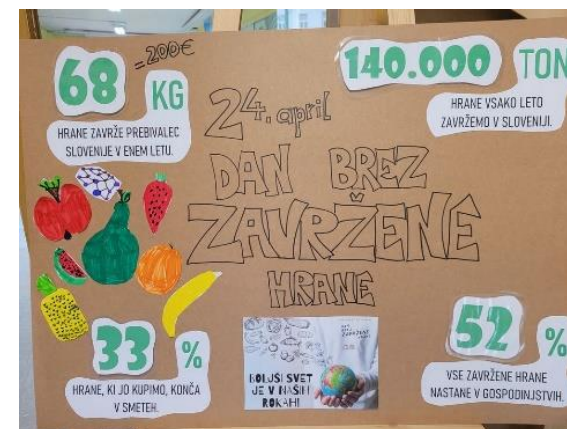 68 KG
= 200€
HRANE ZAVRŽE PREBIVALEC
SLOVENIJE V ENEM LETU.
140.000 TON
HRANE VSAKO LETO
ZAVRŽEMO V SLOVENIJI.
24. april
DAN BREZ
ZAVRŽENE
HRANE
33 %
HRANE, KI JO KUPIMO, KONČA
V SMETEH.
BOLJŠI SVET
JE V NAŠIH
ROKAH!
52 %
VSE ZAVRŽENE HRANE
NASTANE V GOSPODINJSTVIH.